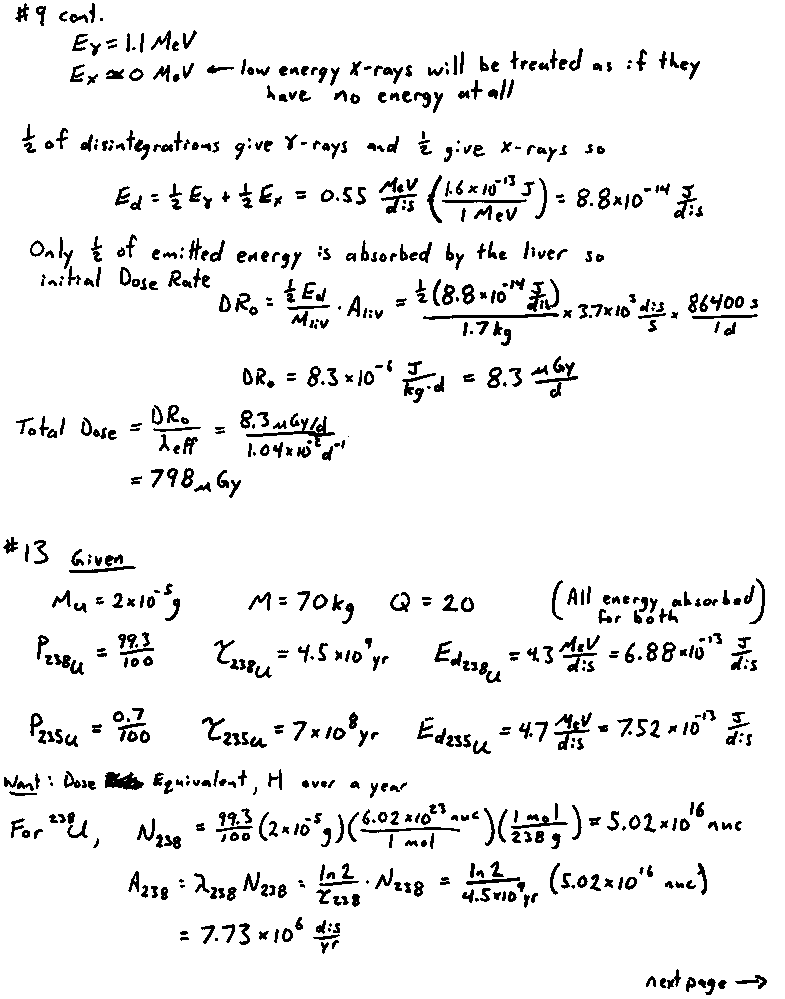 #9 cont.
Eγ = 1.1 MeV
Ex ≃ 0 MeV ← low energy X-rays will be treated as if they
have no energy at all
½ of disintegrations give γ-rays and ½ give x-rays so
Ed = ½ Eγ + ½ Ex = 0.55 MeV/dis (1.6×10⁻¹³ J / 1 MeV) = 8.8×10⁻¹⁴ J/dis
Only ½ of emitted energy is absorbed by the liver so
initial Dose Rate
DR₀ = ½ Ed / Mliv · Aliv = ½ (8.8×10⁻¹⁴ J/dis) / 1.7 kg × 3.7×10³ dis/s × 86400 s / 1 d
DR₀ = 8.3×10⁻⁶ J/kg·d = 8.3 μGy/d
Total Dose = DR₀/λeff = 8.3 μGy/d / 1.04×10⁻² d⁻¹
= 798 μGy
#13 Given
Mu = 2×10⁻⁵ g M = 70 kg Q = 20 (All energy absorbed
for both)
P₂₃₈u = 99.3/100 τ₂₃₈u = 4.5×10⁹ yr Ed₂₃₈u = 4.3 MeV/dis = 6.88×10⁻¹³ J/dis
P₂₃₅u = 0.7/100 τ₂₃₅u = 7×10⁸ yr Ed₂₃₅u = 4.7 MeV/dis = 7.52×10⁻¹³ J/dis
Want: Dose Equivalent, H over a year
For ²³⁸U, N₂₃₈ = 99.3/100 (2×10⁻⁵ g)(6.02×10²³ nuc / 1 mol)(1 mol / 238 g) = 5.02×10¹⁶ nuc
A₂₃₈ = λ₂₃₈ N₂₃₈ = ln 2/τ₂₃₈ · N₂₃₈ = ln 2 / 4.5×10⁹ yr (5.02×10¹⁶ nuc)
= 7.73×10⁶ dis/yr
next page →